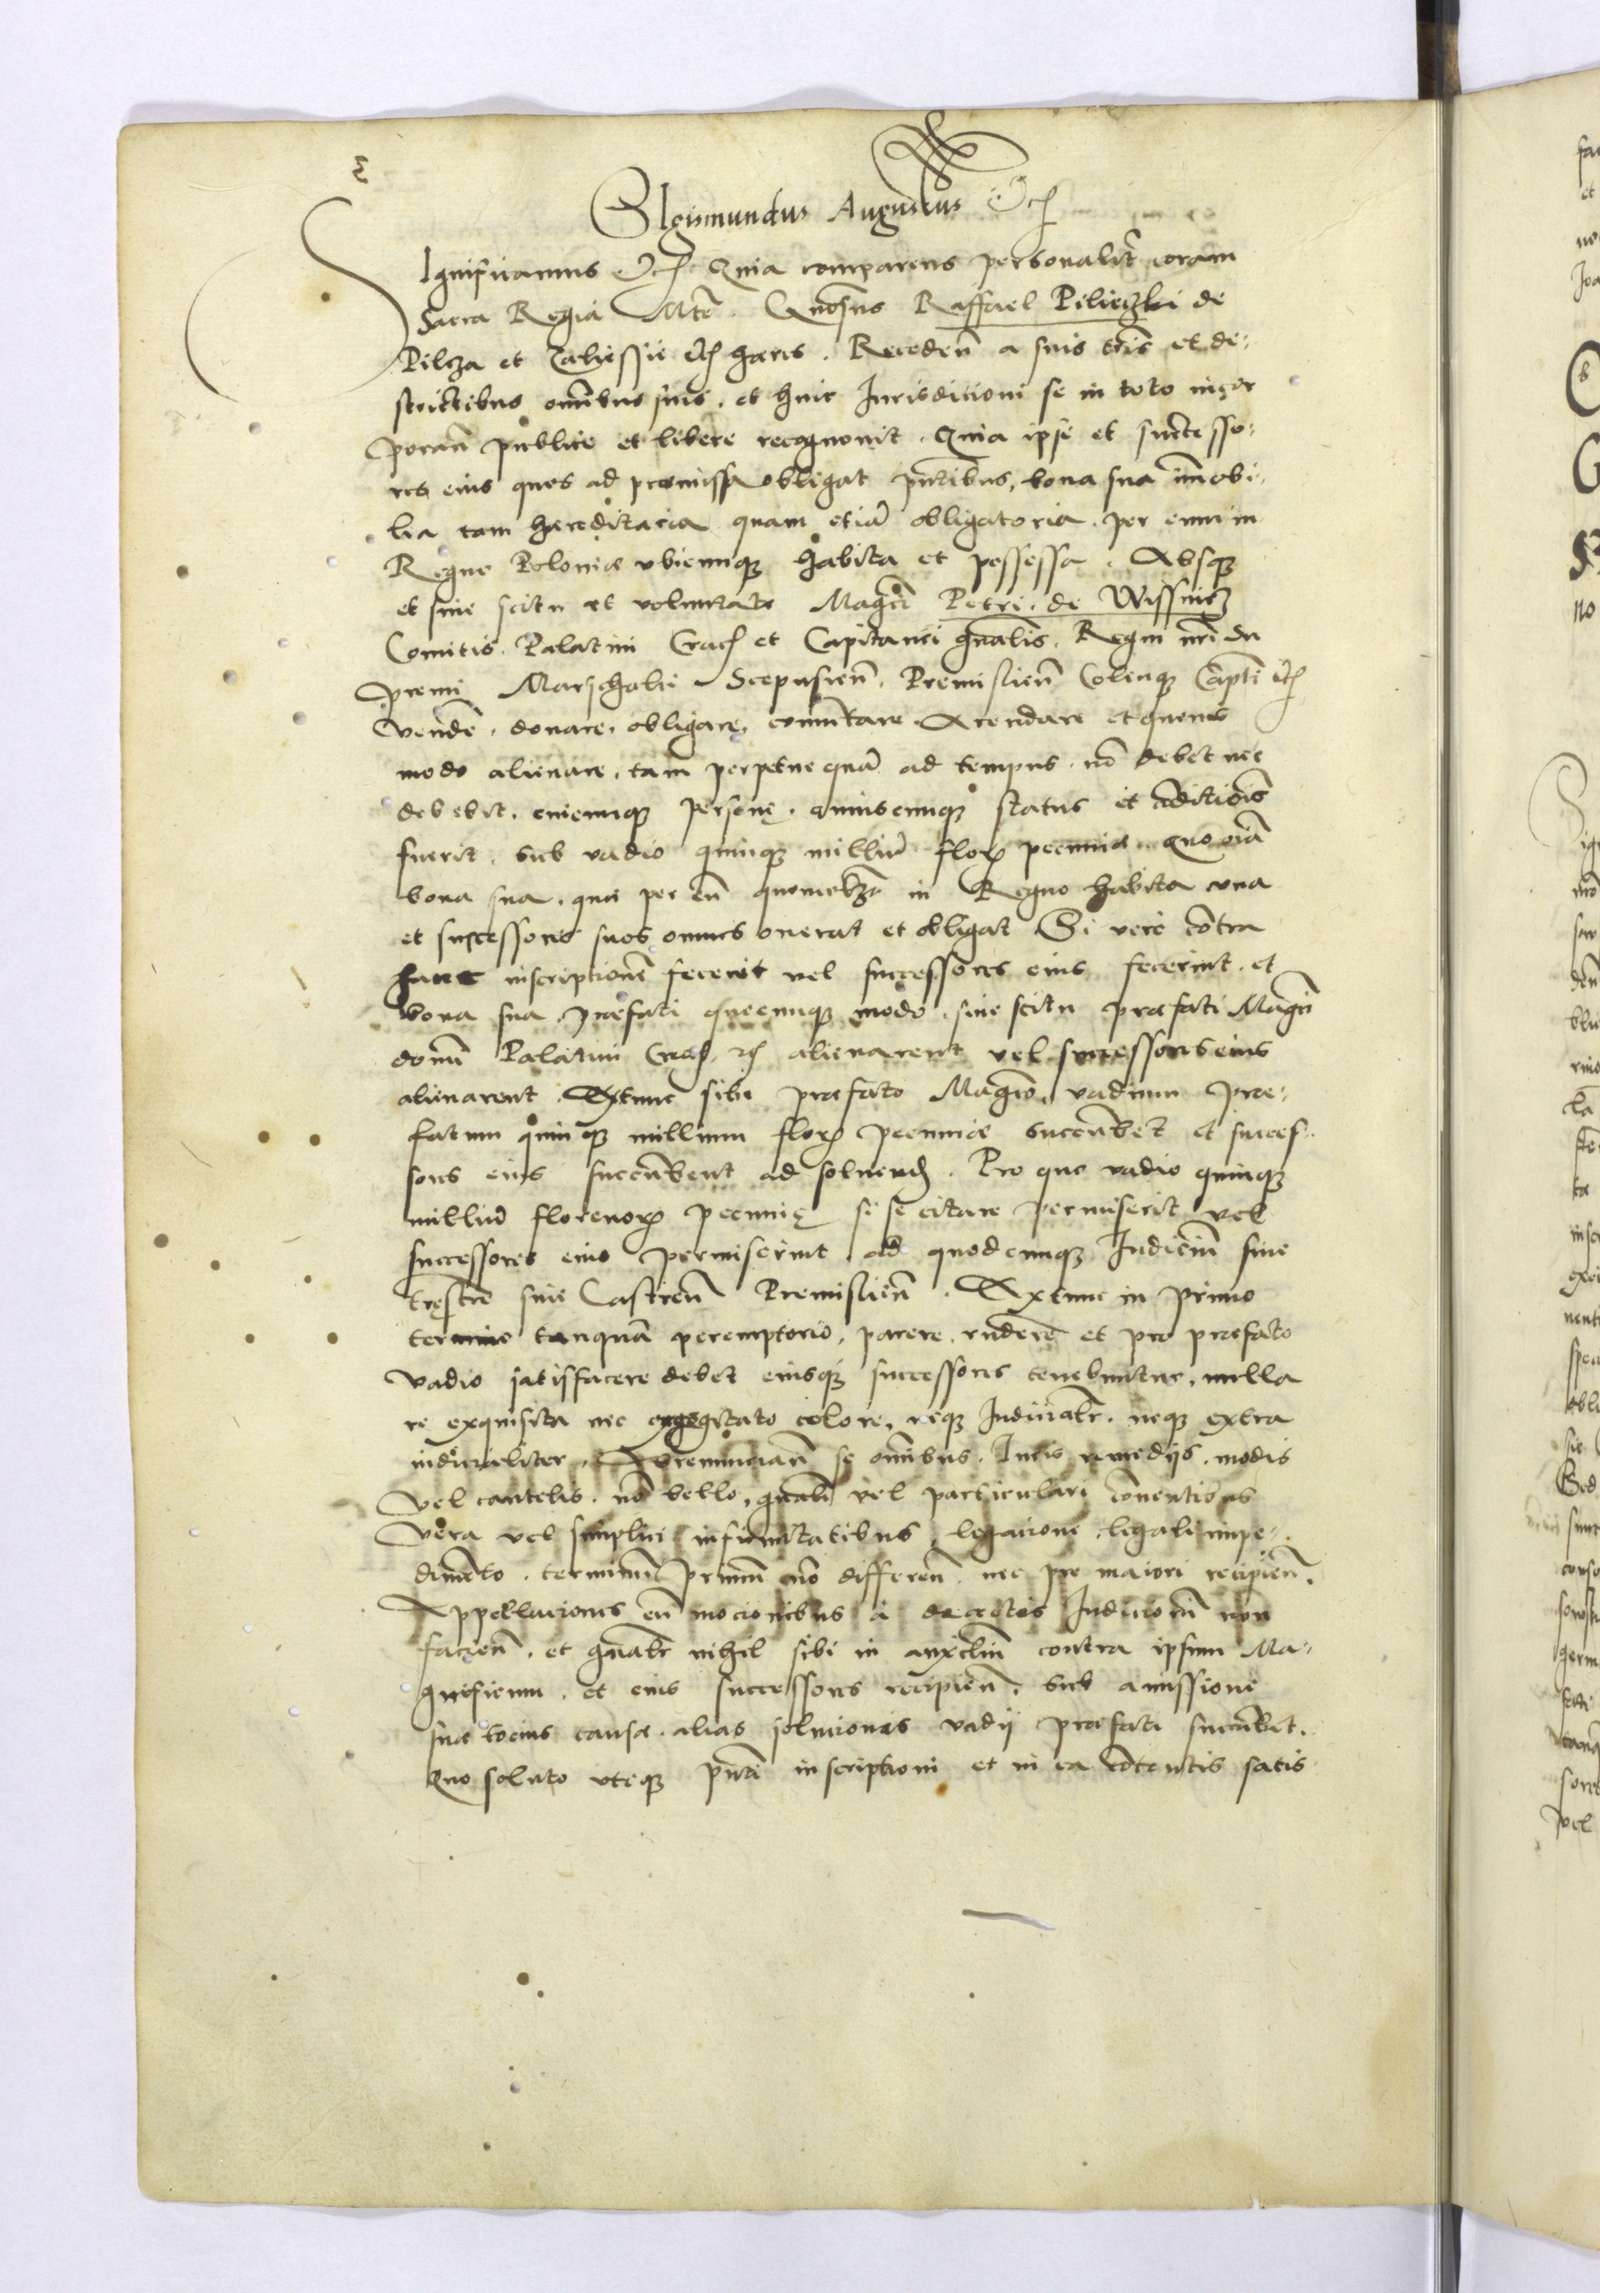 Sigismundus Augustus Etcꝭ
Significamus Etcꝭ. Quia comparens personalitẽr coram
Sacra Regia Mtẽ. Gnõsus Raffael Pilieczki de
Pilcza et Etcꝭ haeres. Recedeñ a suis tẽris et de-
strictibus omĩbus suis, et huic Jurisditioni se in toto incor
porañ publice et libere recognovit. Quia ipse et successo-
res eius quos ad praemissa obligat pñtibus, bona sua im̃obi-
lia tam haereditaria quam etiã obligatoria, per eum in
Regno Poloniae ubicunqꝫ habita et possessa. Absqꝫ
et sine scitu et voluntate Magcĩ Petri de Wissnicz
Comitis Palatini Cracꝭ et Capitanei gñalis, Regni nrĩ Su
premi Marschalci Scepusieñ, Premislieñ Colenqꝫ Captĩ Etcꝭ
vendẽ, donare, obligare, com̃utare, Arendare et quovis
modo alienare, tam perpetue quã ad tempus nõ debet nec
debebit, cuicunqꝫ personę, cuiuscunqꝫ status et cõditionis
fuerit, sub vadio quinqꝫ milliũ florꝝ pecuniae. Quo oĩa
bona sua, quae per eũ in Regno habita una
et successores suos omnes onerat et obligat Si vero cõtra
hanc inscriptionẽ fecerit vel successores eius fecerint, et
bona sua praefati quocunqꝫ modo, sine scitu praefati Magcĩ
domĩ Palatini Cracꝭ Etcꝭ alienarent vel successores eius
alienarent. Extunc sibi praefato Magcõ, vadium prae-
fatum quinqꝫ millium florꝝ pecuniae succũbet et succes-
sores eius succũbent ad solvendꝭ. Pro quo vadio quinqꝫ
milliũ florenorꝝ pecunię si se citare permiserit vel
successores eius permiserint ad quodcunqꝫ Judiciũ sive
trẽstre sive Castreñ Premislieñ. Extunc in primo
termino tanquã peremptorio, parere rñdere et pro praefato
vadio satisfacere debet eiusqꝫ successores tenebuntur, nulla
re exquisita nec excogitato colore, neqꝫ Judicialr̃, neqꝫ extra
iudicialiter. Abrenunciañ se omĩbus Juris remediis, modis
vel cautelis, nõ bello, gñali vel particulari cõventibus
vera vel simplici infirmitatibus legacione, legali impe-
dimẽto, terminũ primũ nõ differeñ, nec pro maiori recipieñ,
Appellaciones eũ mocionibus a decretis Judiciorũ non
facieñ, et gñalr̃ nihil sibi in auxiliũ contra ipsum Ma-
gnificum, et eius successores recipieñ, sub amissione
suae tocius causae, alias solucionis vadij praefati succũbet.
Quo soluto uteqꝫ pñti inscriptioni et in ea cõtentis satis